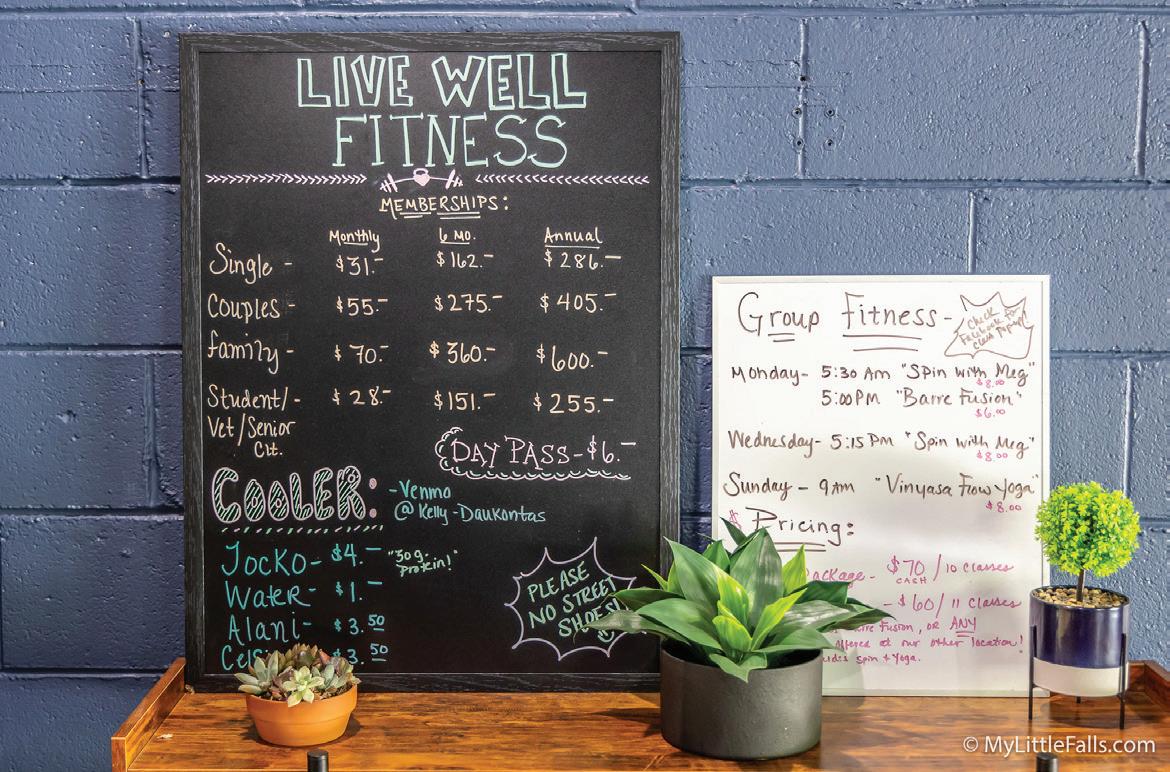 LIVE WELL
FITNESS
MEMBERSHIPS:
Monthly 6 MO. Annual
Single - $31.- $162.- $286.-
Couples - $55.- $275.- $405.-
Family - $70.- $360.- $600.-
Student/- $28.- $151.- $255.-
Vet/Senior
Cit.
DAY PASS-$6.-
COOLER:
-Venmo
@Kelly-Daukontas
Jocko- $4.- "30g.
protein!"
Water- $1.-
Alani- $3.50
$3.50
PLEASE
NO STREET
SHOES!
Group Fitness-
Check
Facebook for
Class
Monday- 5:30 Am "Spin with Meg"
$8.00
5:00PM "Barre Fusion"
$6.00
Wednesday- 5:15 Pm "Spin with Meg"
$8.00
Sunday - 9AM "Vinyasa Flow Yoga"
$8.00
$ Pricing:
ackage- $70/10 classes
CASH
-$60/11 classes
Fusion, OR ANY
at our other location!
Spin + Yoga.
© MyLittleFalls.com